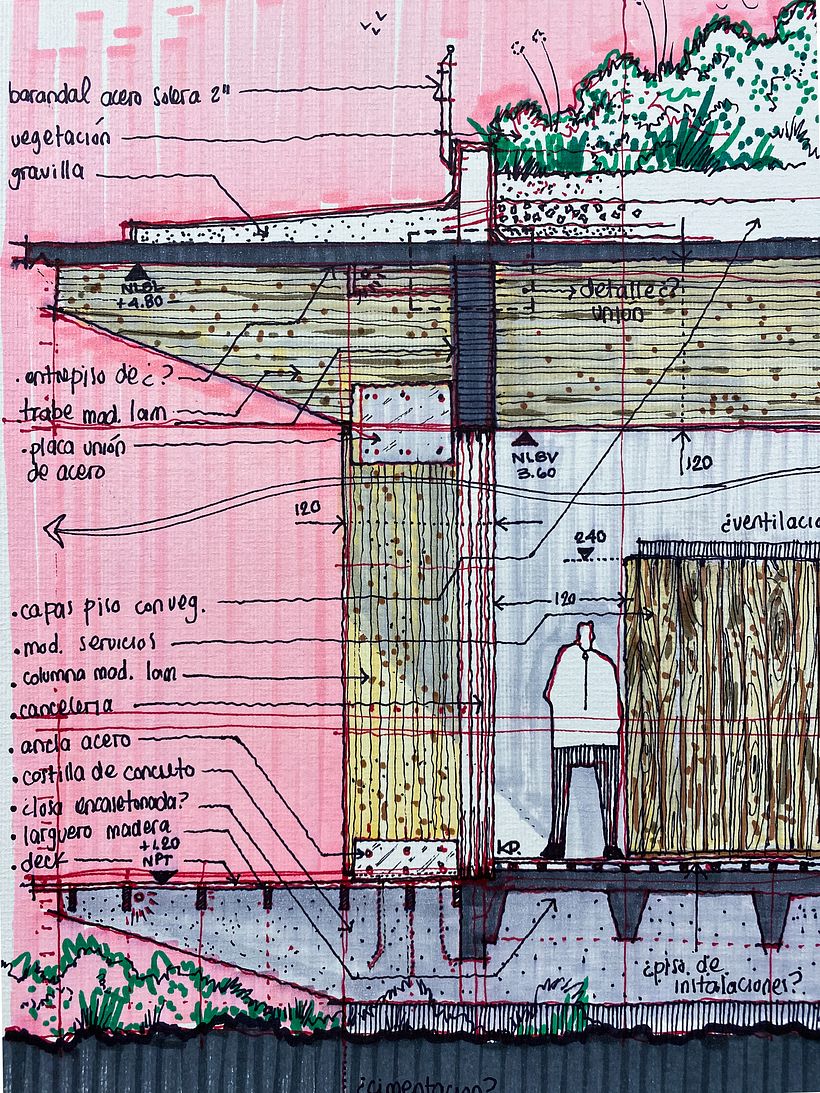 barandal acero solera 2"
vegetación
gravilla
+4.80
detalle ¿?
union
.entrepiso de ¿?
trabe mad. lam
.placa unión
de acero
NLBV
3.60
120
120
¿ventilacio
240
120
.capas piso con veg.
.mod. servicios
.columna mad. lam
.canceleria
.ancla acero
.costilla de concreto
.¿losa encasetonada?
.larguero madera
+1.20
NPT
.deck
KD.
¿piso de
instalaciones?
¿cimentacion?